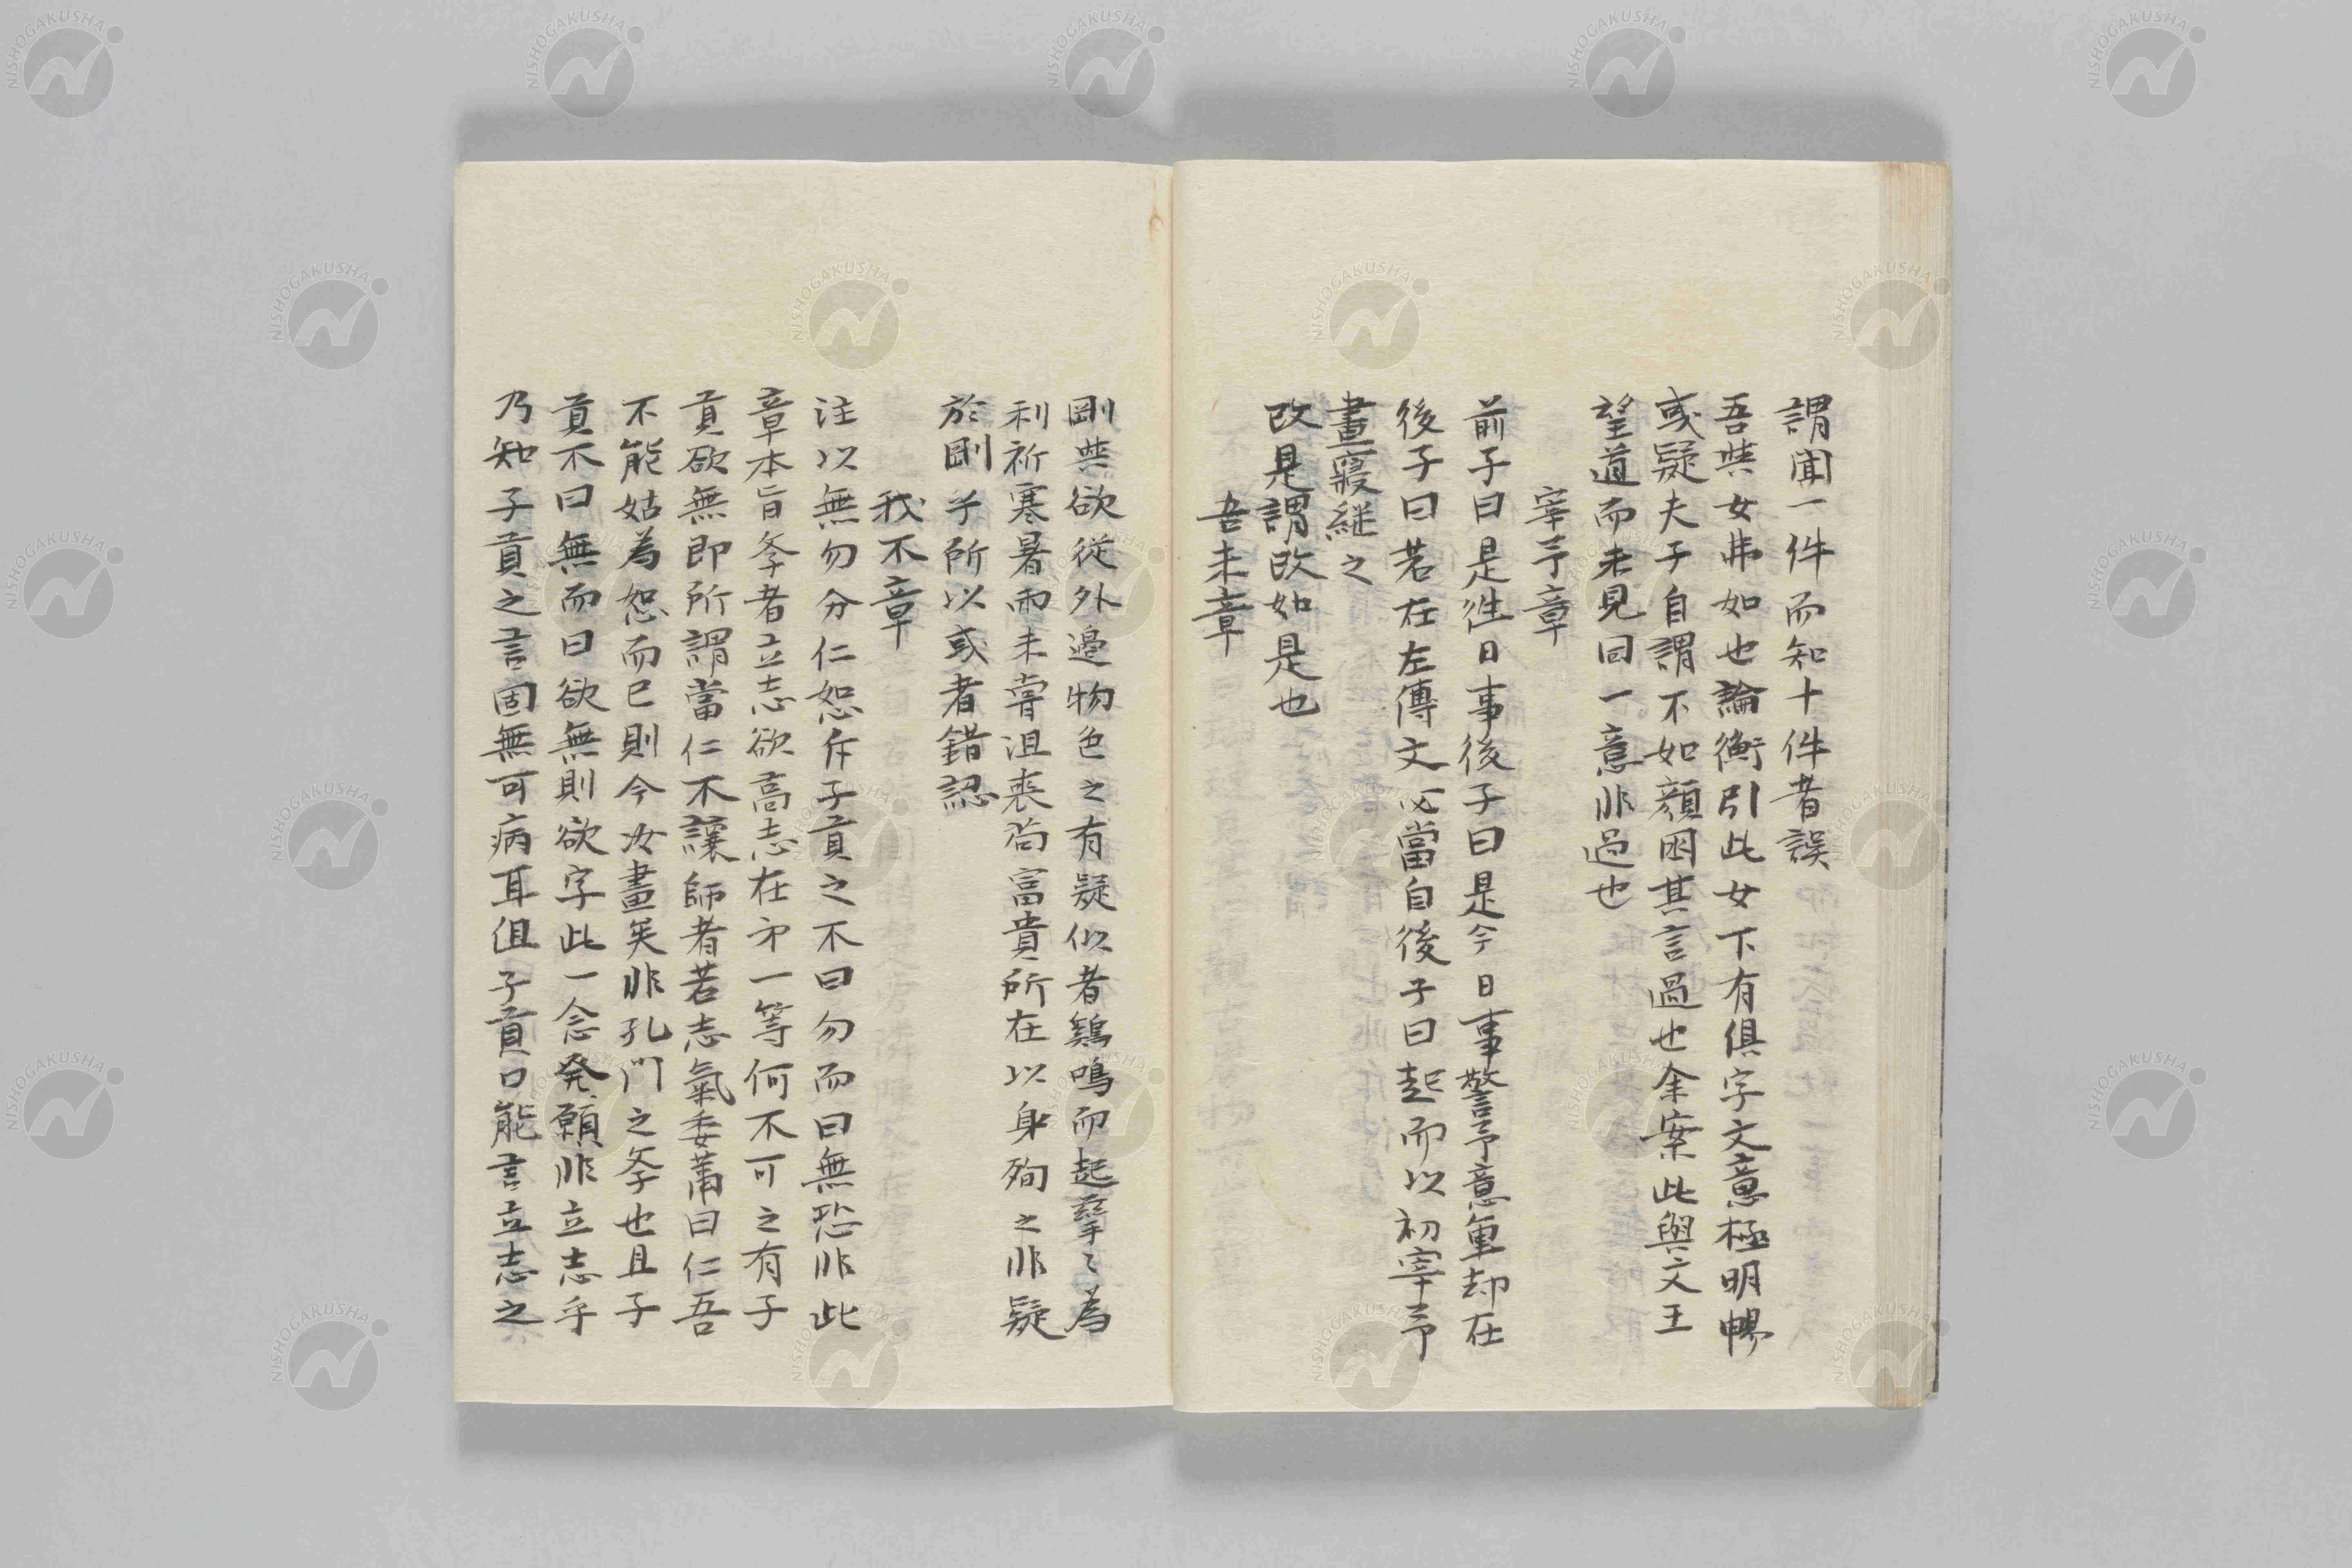 謂聞一件而知十件者誤
吾與女弗如也論衡引此女下有俱字文意極明暢
或疑夫子自謂不如顔囬其言過也余案此與文王
望道而未見同一意非過也
宰予章
前子曰是徃日事後子曰是今日事警予意重却在
後子曰若在左傳文必當自後子曰起而以初宰予
晝寢継之
改是謂改如是也
吾未章
剛與欲從外邊物色之有疑似者鷄鳴而起孳〻為
利祈寒暑雨未嘗沮喪苟富貴所在以身殉之非疑
於剛乎所以或者錯認
我不章
注以無勿分仁恕斥子貢之不曰勿而曰無恐非此
章本旨夅者立志欲高志在㐧一等何不可之有子
貢欲無即所謂當仁不讓師者若志氣委薾曰仁吾
不能姑為恕而已則今汝畫矣非孔門之夅也且子
貢不曰無而曰欲無則欲字此一念発願非立志乎
乃知子貢之言固無可病耳但子貢口能言立志之
NISHOGAKUSHA